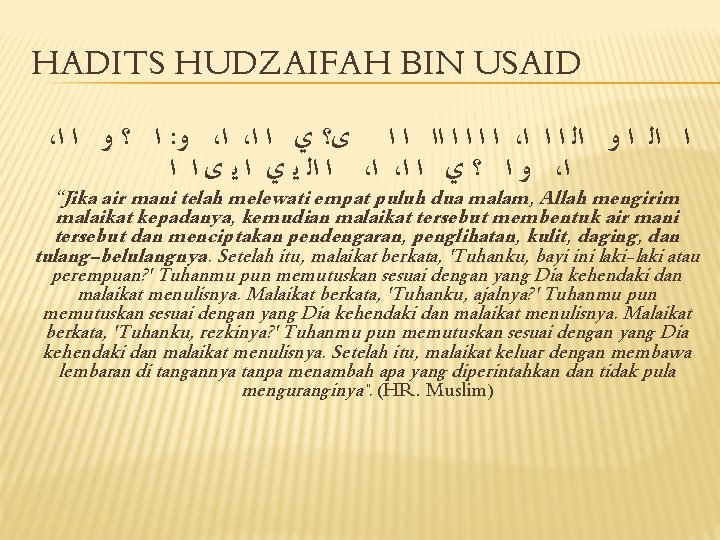 HADITS HUDZAIFAH BIN USAID
“Jika air mani telah melewati empat puluh dua malam, Allah mengirim
malaikat kepadanya, kemudian malaikat tersebut membentuk air mani
tersebut dan menciptakan pendengaran, penglihatan, kulit, daging, dan
tulang-belulangnya. Setelah itu, malaikat berkata, 'Tuhanku, bayi ini laki-laki atau
perempuan?' Tuhanmu pun memutuskan sesuai dengan yang Dia kehendaki dan
malaikat menulisnya. Malaikat berkata, 'Tuhanku, ajalnya?' Tuhanmu pun
memutuskan sesuai dengan yang Dia kehendaki dan malaikat menulisnya. Malaikat
berkata, 'Tuhanku, rezkinya?' Tuhanmu pun memutuskan sesuai dengan yang Dia
kehendaki dan malaikat menulisnya. Setelah itu, malaikat keluar dengan membawa
lembaran di tangannya tanpa menambah apa yang diperintahkan dan tidak pula
menguranginya”. (HR. Muslim)